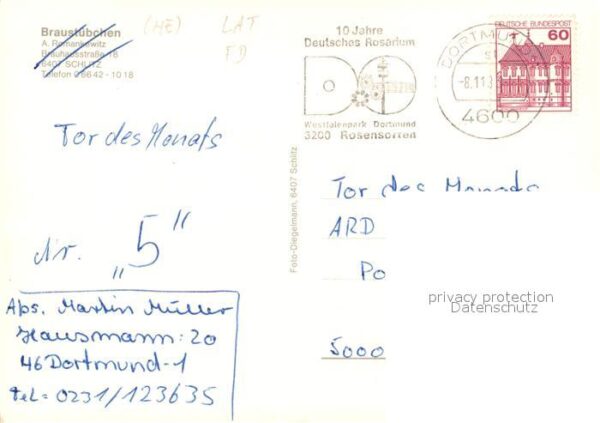 Braustübchen
A. Romankewitz
Brauhausstraße 18
6407 SCHLITZ
Telefon 0 66 42 - 10 18
(HE) LAT
FD
10 Jahre
Deutsches Rosarium
Westfalenpark Dortmund
3200 Rosensorten
DORTMUND
-8.11.8
4600
DEUTSCHE BUNDESPOST
60
Tor des Monats
Nr. „5"
Abs. Martin Müller
Hausmann: 20
46 Dortmund-1
tel= 0231/123635
Foto-Diegelmann, 6407 Schlitz
Tor des Monats
ARD
Po
5000
privacy protection
Datenschutz